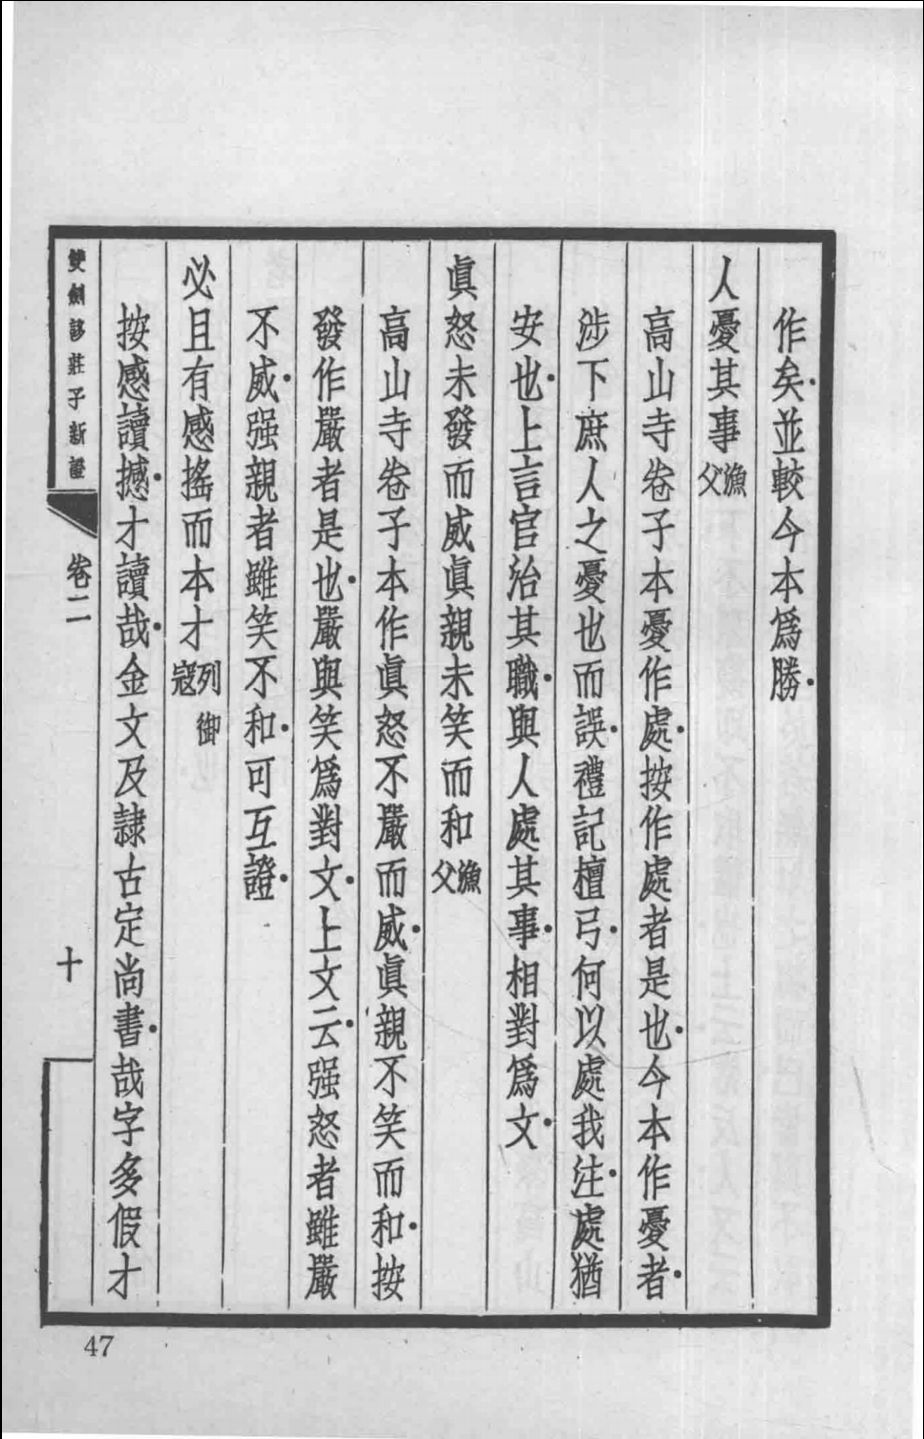 作矣．並較今本爲勝．
人憂其事漁父
高山寺卷子本憂作處．按作處者是也．今本作憂者．
涉下庶人之憂也而誤．禮記檀弓．何以處我注．處猶
安也．上言官治其職．與人處其事．相對爲文．
眞怒未發而威眞親未笑而和漁父
高山寺卷子本作眞怒不嚴而威．眞親不笑而和．按
發作嚴者是也．嚴與笑爲對文．上文云．强怒者雖嚴
不威．强親者雖笑不和．可互證．
必且有感搖而本才列御寇
按感讀撼．才讀哉．金文及隸古定尚書．哉字多假才
雙劍誃莊子新證
卷二
十
47